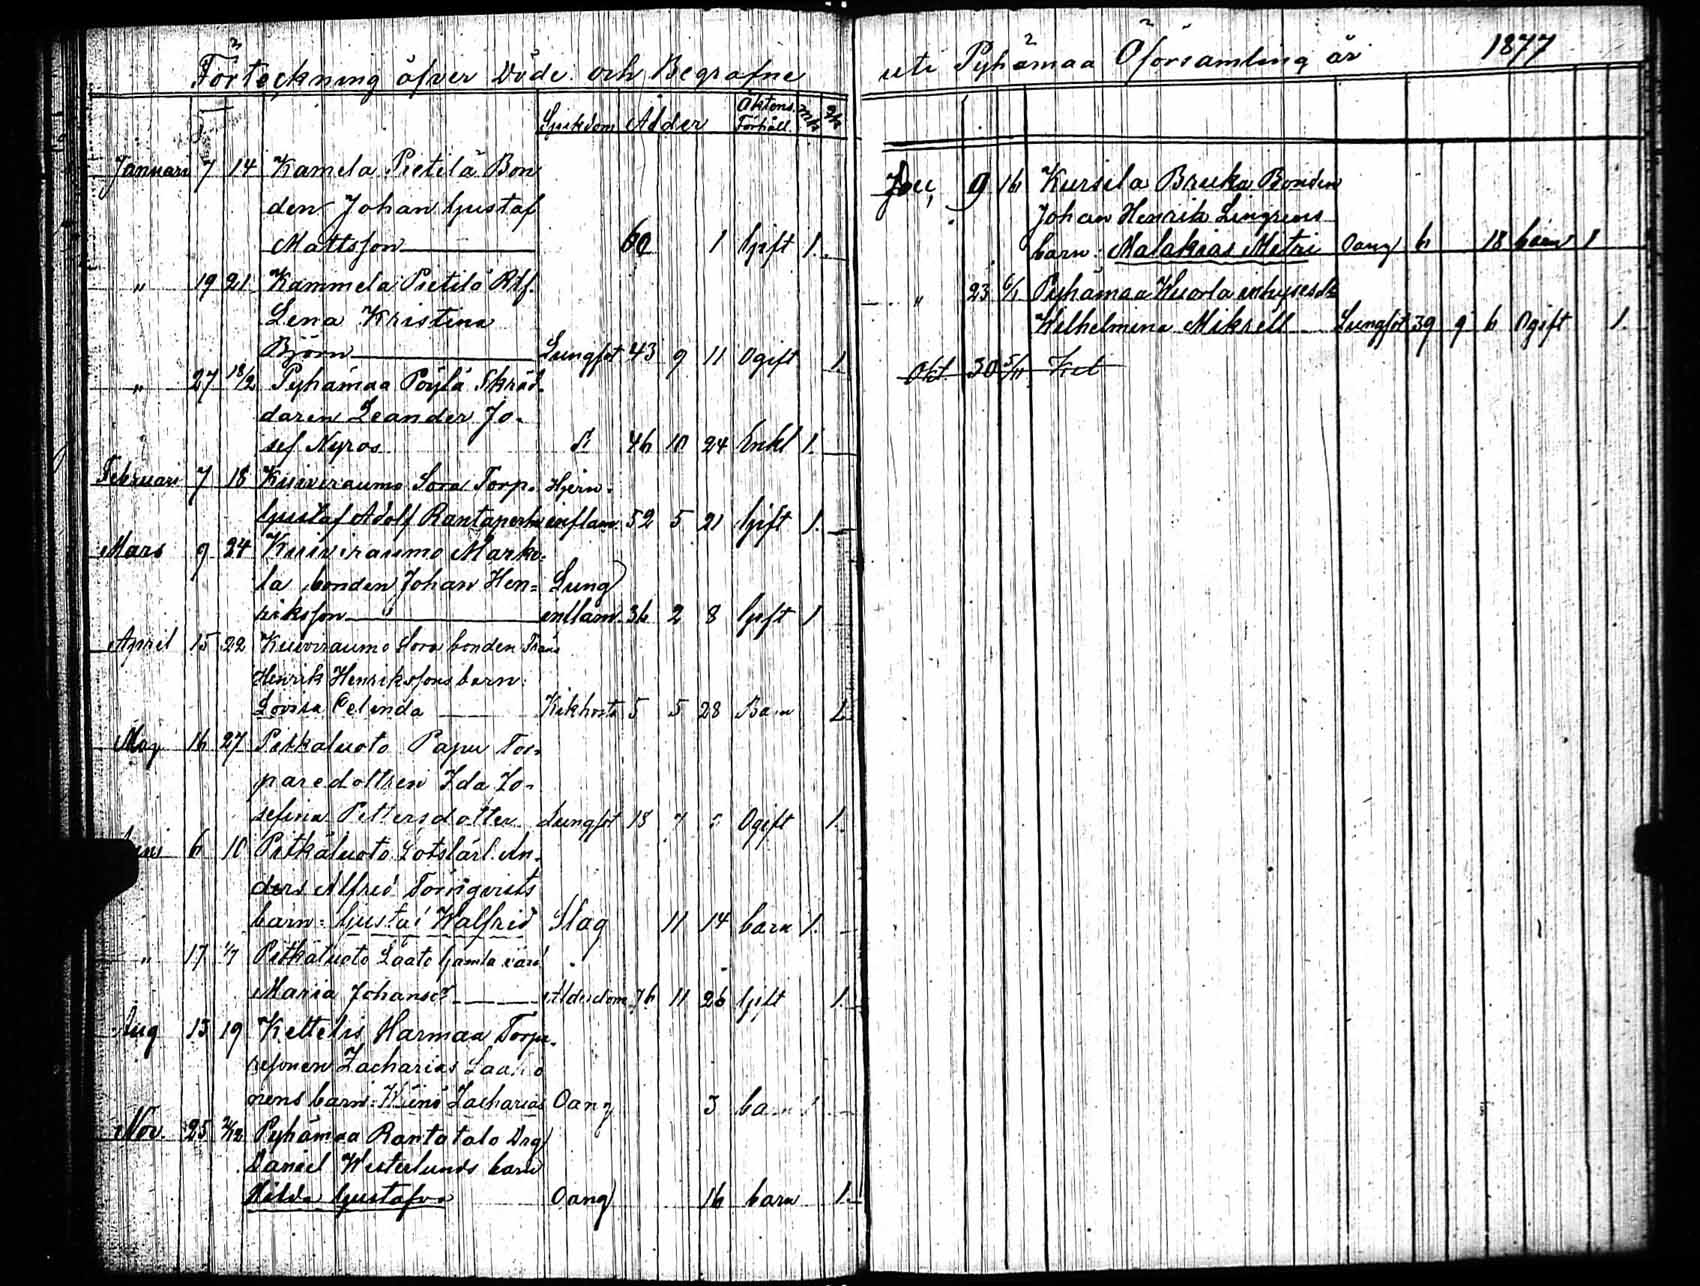 Förteckning öfver Döde och Begrafne
Sjukdom Ålder Äktens. Förhåll. Mk Qk
Januari 7 14 Kamela Pietilä Bon
den Johan Gustaf
Mattsson 60 1 Gift 1.
" 19 21 Kammela Pietilä Rtf.
Lena Kristina
Björn Lungsot 43 9 11 Ogift 1
" 27 18/2 Pyhämaa Pöylä Skräd-
daren Leander Jo-
sef Nyros 46 10 24 Enkl 1.
Februari 7 18 Kuiviraumo Sora Torp. Hjern-
Gustaf Adolf Rantaperhe inflam. 52 5 21 Gift 1.
Mars 9 24 Kuiviraumo Marko-
la bonden Johan Hen= Lung
riksson inflam. 36 2 8 Gift 1
April 15 22 Kuiviraumo Sora bonden Frans
Henrik Henrikssons barn:
Lovisa Celinda Kikhosta 5 5 28 Barn 1.
Maj 16 27 Pitkäluoto Papu Tor-
paredottren Ida Jo-
sefina Pettersdotter Lungsot 18 7 Ogift 1.
Juni 6 10 Pitkäluoto Lotslärl. An-
ders Alfred Törnqvists
barn: Gustaf Walfrid Slag 11 14 barn 1.
" 17 1/7 Pitkäluoto Laato Gamla värd
Maria Johansd Ålderdom 76 11 26 Gift 1.
Aug 13 19 Kettelis Harmaa Torpa-
resonen Zacharias
nens barn: Wäinö Zacharias Oang 3 barn 1
Nov. 25 2/12 Pyhämaa Rantatalo Drg
Daniel Westerlunds barn
Hilda Gustafva Oang 16 barn 1.
uti Pyhämaa Öförsamling år 1877
9 16 Kursila Bruka Bonden
Johan Henrik Lingrens
barn: Malakias Metri Oang 6 18 barn 1
" 23 6/1 Pyhämaa Kuorla inhysesdr
Wilhelmina Mikrell Lungsot 39 9 6 Ogift 1.
Okt 30 5/11 Ket